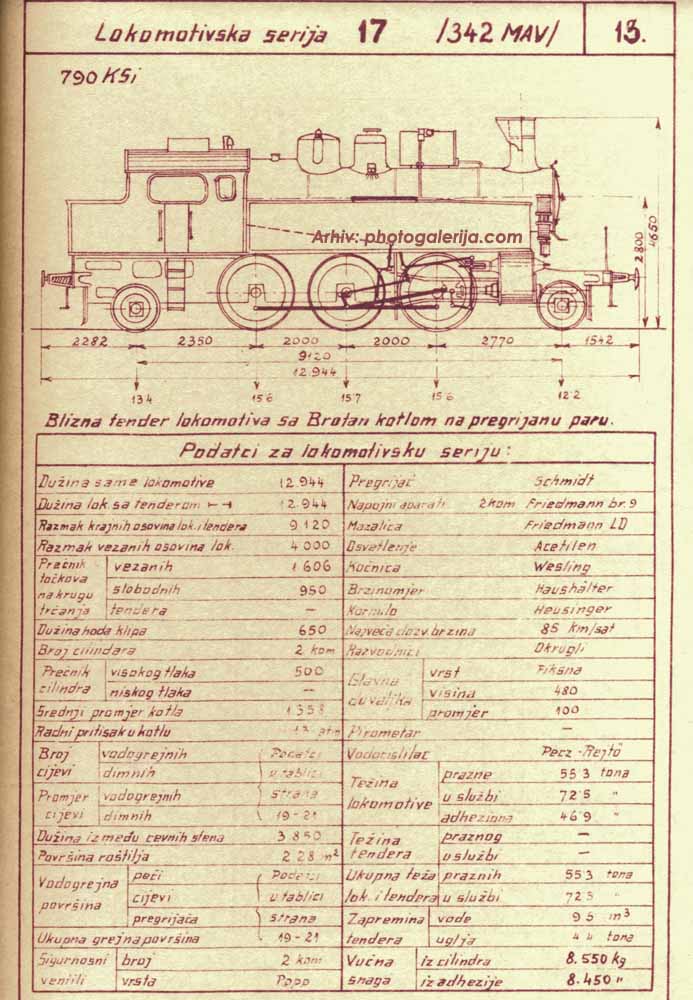 Lokomotivska serija 17 /342 MAV/ 13.
790 KSi
Arhiv: photogalerija.com
4650
2800
2282 2350 2000 2000 2770 1542
9120
12.944
13 4 15 6 15 7 15 6 12 2
Blizna tender lokomotiva sa Brotan kotlom na pregrijanu paru.
Podatci za lokomotivsku seriju:
Dužina same lokomotive 12.944 Pregrijač Schmidt
Dužina lok. sa tenderom 12.944 Napojni aparati 2 kom Friedmann br. 9
Razmak krajnih osovina lok. i tendera 9 120 Mazalica Friedmann LD
Razmak vezanih osovina lok. 4 000 Osvetlenje Acetilen
Prečnik točkova na krugu trčanja vezanih 1 606 Kočnica Wesling
slobodnih 950 Brzinomjer Haushälter
tendera — Kormilo Heusinger
Dužina hoda klipa 650 Najveća dozv. brzina 85 km/sat
Broj cilindara 2 kom Razvodnici Okrugli
Prečnik cilindra visokog tlaka 500 Glavna duvaljka vrst Fiksna
niskog tlaka — visina 480
Srednji promjer kotla 1 353 promjer 100
Radni pritisak u kotlu 13 atm Pirometar —
Broj cijevi vodogrejnih Podatci Vodočistilač Pecz-Rejtö
dimnih u tablici Težina lokomotive prazne 55 3 tona
Promjer cijevi vodogrejnih strana u službi 72 5 "
dimnih 19-21 adheziona 46 9 "
Dužina između cevnih stena 3 850 Težina tendera praznog —
Površina roštilja 2 28 m² u službi —
Vodogrejna površina peći Podatci Ukupna teža lok. i tendera praznih 55 3 tona
cijevi u tablici u službi 72 5 "
pregrijača strana Zapremina tendera vode 9 5 m³
Ukupna grejna površina 19-21 uglja 4 4 tona
Sigurnosni ventili broj 2 kom Vučna snaga iz cilindra 8.550 kg
vrsta Popp iz adhezije 8.450 "